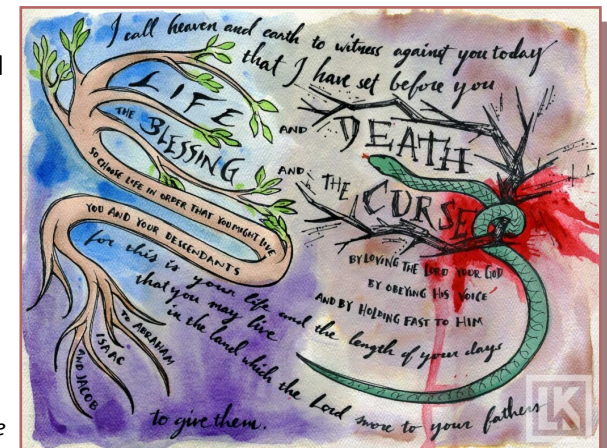 I call heaven and earth to witness against you today
that I have set before you
LIFE
AND DEATH
THE BLESSING
AND THE CURSE
SO CHOOSE LIFE IN ORDER THAT YOU MIGHT LIVE
YOU AND YOUR DESCENDANTS
BY LOVING THE LORD YOUR GOD
BY OBEYING HIS VOICE
AND BY HOLDING FAST TO HIM
for this is your life and the length of your days
that you may live
in the land which the Lord swore to your fathers
TO ABRAHAM
ISAAC
AND JACOB
to give them.
LK